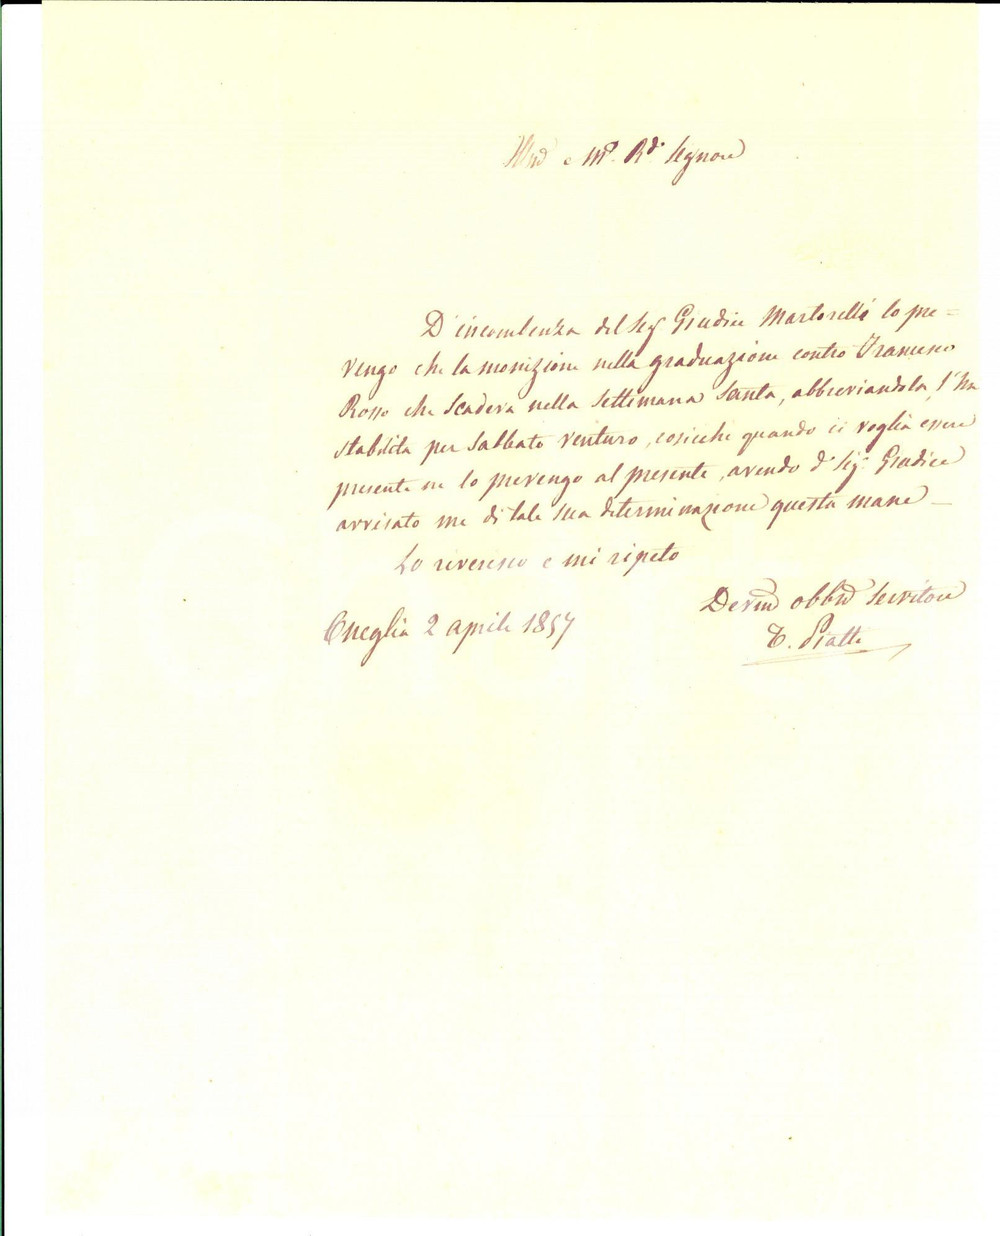 Illmo e M.o R.do Signore
D'incombenza del Sig.r Giudice Martorelli lo pre-
vengo che la monizione nella graduazione contro Francesco
Rosso che scadeva nella settimana santa, abbreviandola, l'ha
stabilita per sabbato venturo, cosicchè quando ci voglia essere
presente ne lo prevengo al presente, avendo d.o Sig.r Giudice
avvisato me di tale sua determinazione questa mane —
Lo riverisco e mi ripeto
Oneglia 2 aprile 1857
Devmo obbmo servitore